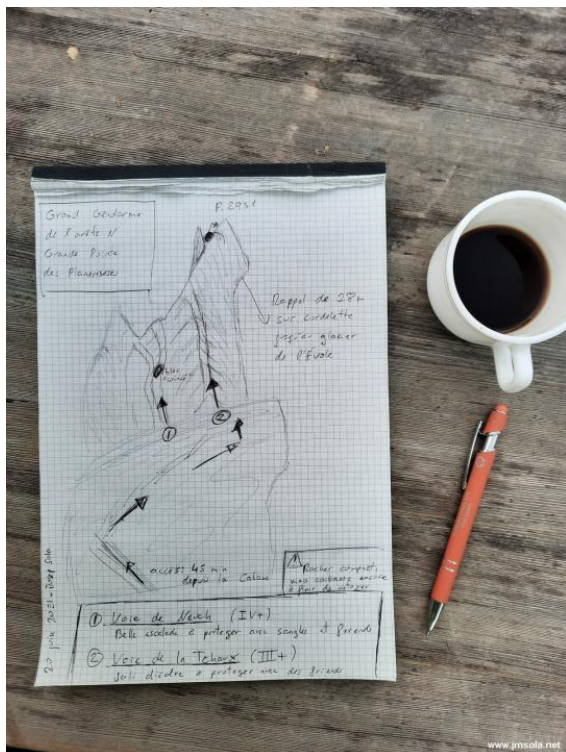 Grand Gendarme
de l'arête N
Grande Pointe
des Planereuses
P. 2931
Rappel de 28m
sur cordelette
jusqu'au glacier
de l'Évole
①
②
accès: 45 min
depuis la Cabane
Rocher compact,
mais cailloux encore
à finir de nettoyer
① Voie de Neuch (IV+)
Belle escalade à protéger avec sangles et friends
② Voie de la Tchaux (III+)
Joli dièdre à protéger avec des friends
www.jmsola.net